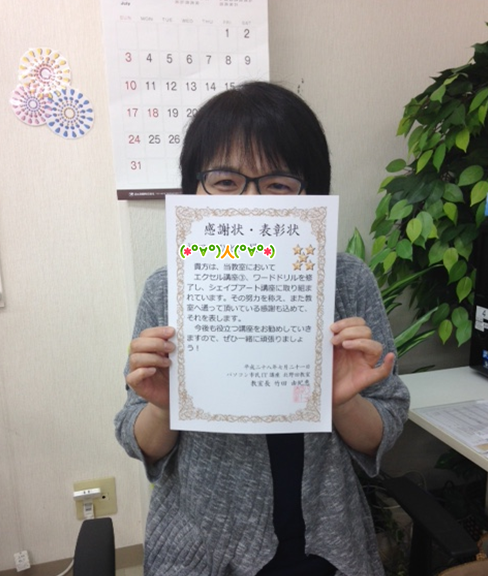 SUN MON TUE WED THU FRI SAT
1 2
3 4 5 6 7 8 9
10 11 12 13 14 15 16
17 18
24 25 26
31
感謝状・表彰状
(*°∀°)人(°∀°*)
貴方は、当教室において
エクセル講座③、ワードドリルを修
了し、シェイプアート講座に取り組ま
れています。その努力を称え、また教
室へ通って頂いている感謝も込めて、
それを表します。
今後も役立つ講座をお勧めしていき
ますので、ぜひ一緒に頑張りましょ
う！
平成二十八年七月二十一日
パソコン市民IT講座 北野田教室
教室長 竹田 由紀恵